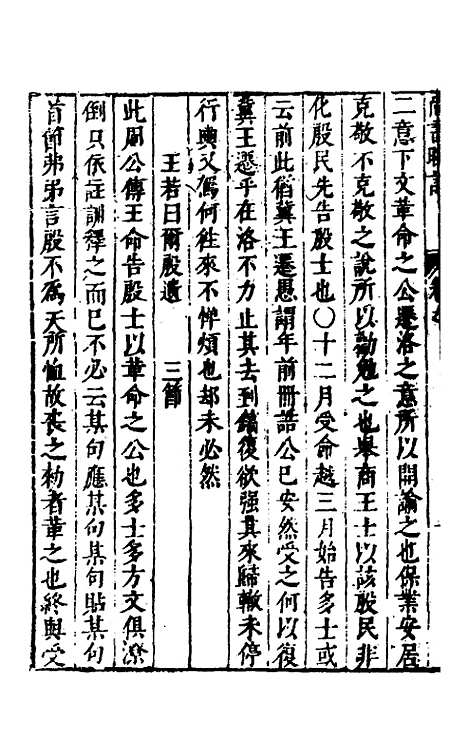 二意下文革命之公遷洛之意所以開諭之也保業安居
克敬不克敬之說所以勸勉之也舉商王士以該殷民非
化殷民先告殷士也〇十二月受命越三月始告多士或
云前此猶冀王遷愚謂年前冊誥公已安然受之何以復
冀王遷乎在洛不力止其去到鎬復欲强其來歸轍未停
行輿又駕何往來不憚煩也却未必然
王若曰爾殷遺　三節
此周公傳王命告殷士以革命之公也多士多方文俱潦
倒只依註訓釋之而已不必云某句應某句某句貼某句
首節弗弔言殷不為天所恤故喪之勑者革之也終與受